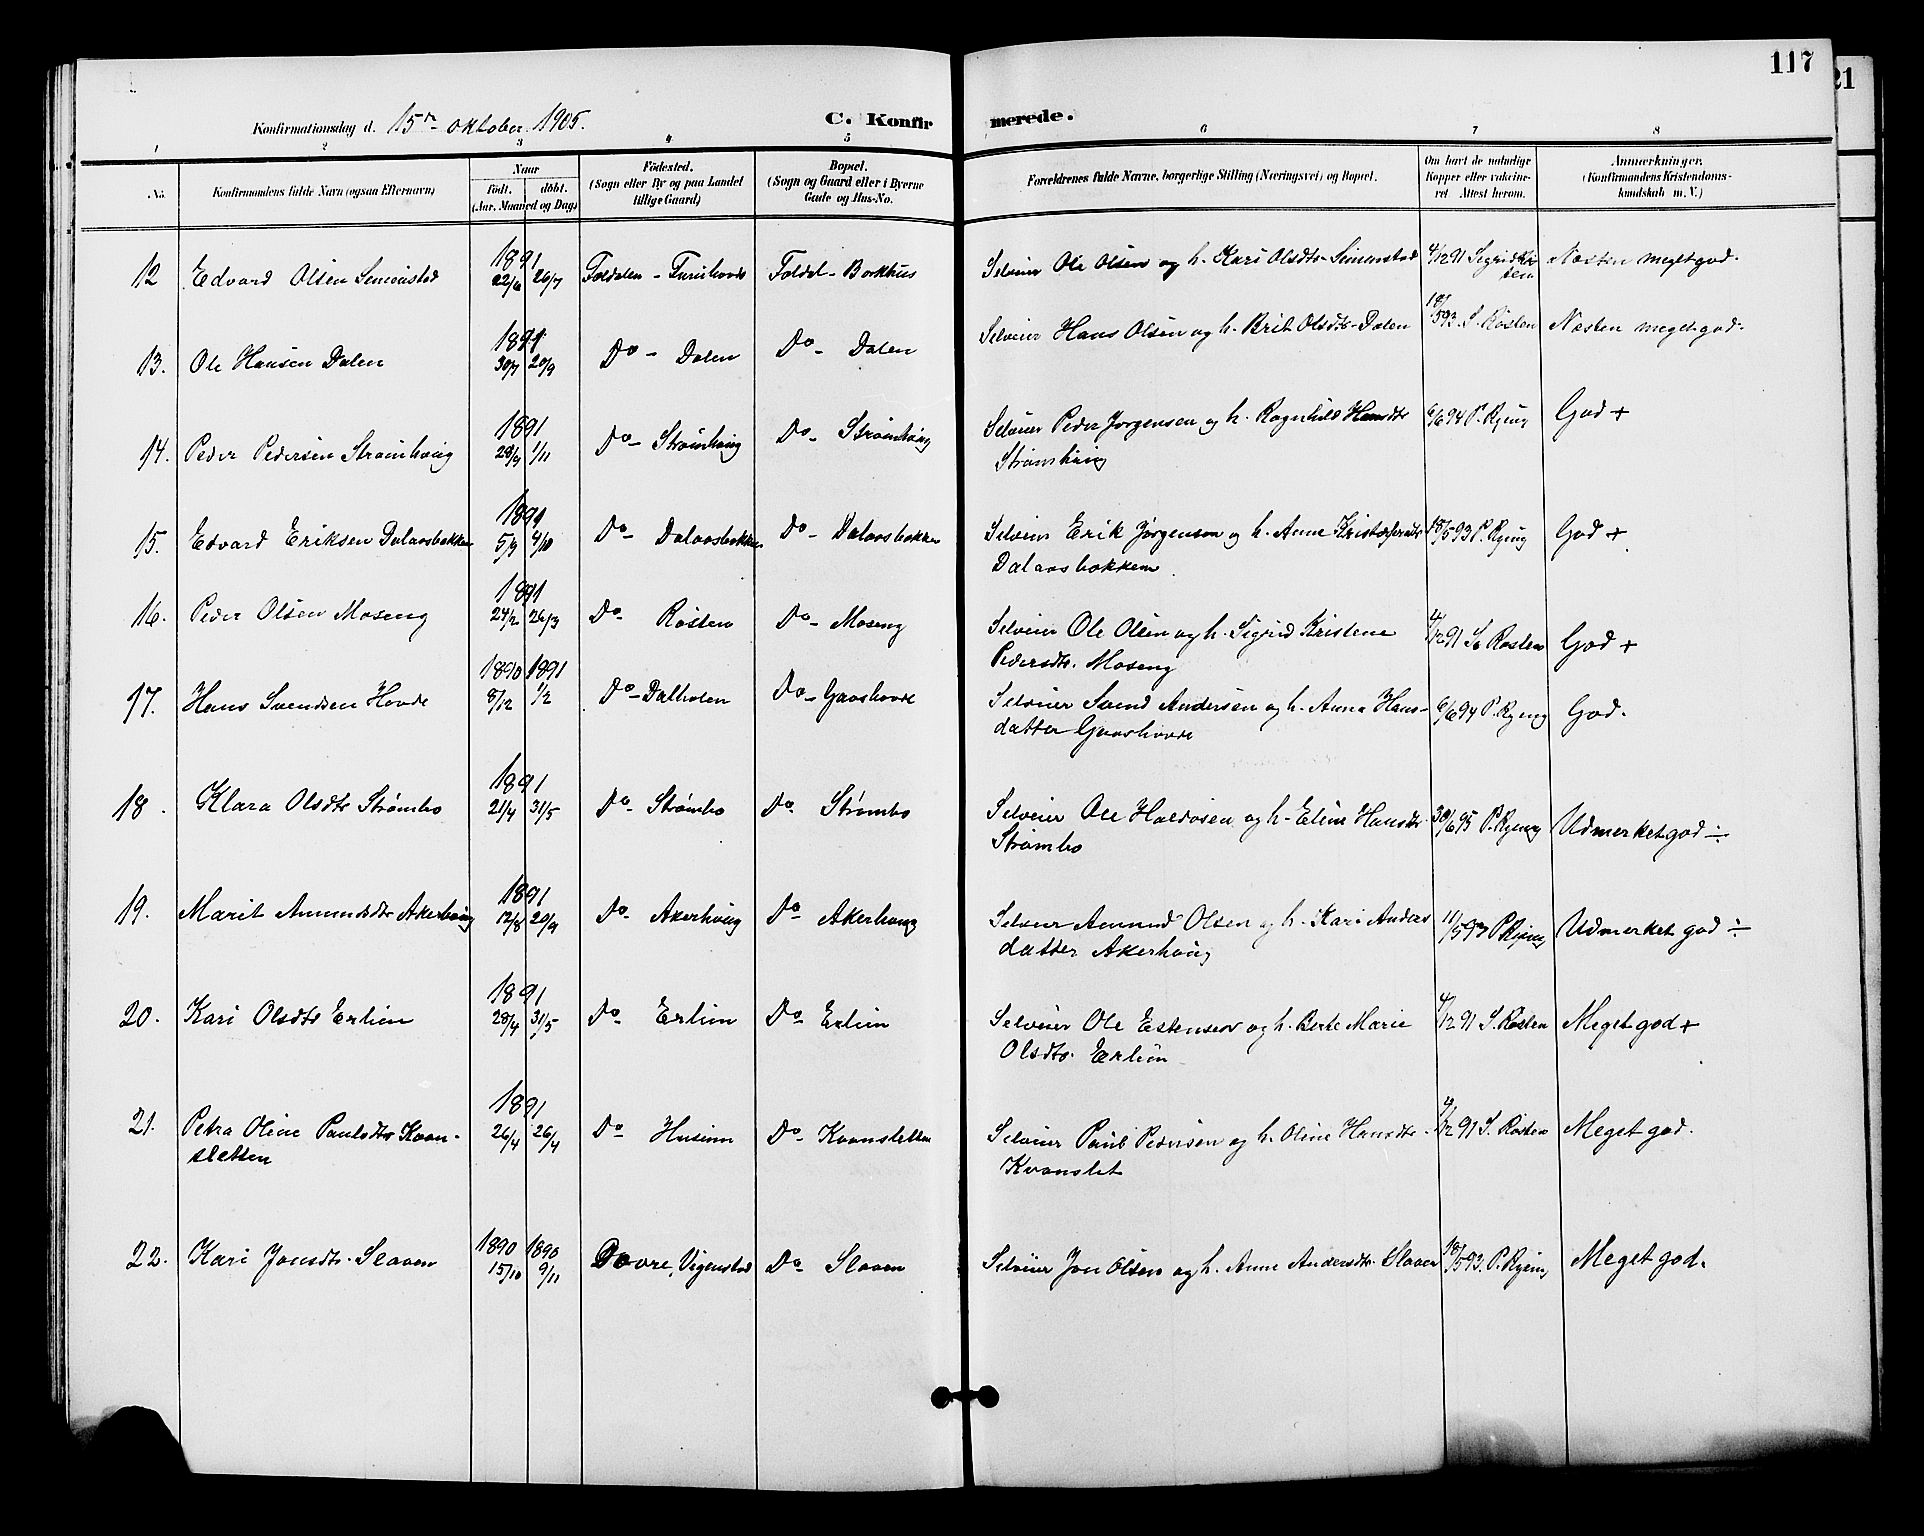 117
21
Konfirmationsdag d. 15de oktober 1905.
C. Konfirmerede.
1 2 3 4 5 6 7 8
No.
Konfirmandens fulde Navn (ogsaa Efternavn)
Naar
födt. döbt.
(Aar, Maaned og Dag)
Födested.
(Sogn eller By og paa Landet
tillige Gaard)
Bopæl.
(Sogn og Gaard eller i Byerne
Gade og Hus-No.
Forældrenes fulde Navne, borgerlige Stilling (Næringsvei) og Bopæl.
Om havt de naturlige
Kopper eller vakcine-
ret. Attest herom.
Anmærkninger.
(Konfirmandens Kristendoms-
kundskab m. V.)
1891
12 Edvard Olsen Simenstad 22/6 26/7 Foldalen - Furuhovde Foldal - Borkhus Selveier Ole Olsen og h. Kari Olsdtr. Simenstad 4/12 91 Sigrid Røsten Næsten meget god.
1891
13. Ole Hansen Dalen 30/7 20/9 Do - Dalen Do - Dalen Selveier Hans Olsen og h. Brit Olsdtr. Dalen 18/5 93 S. Røsten Næsten meget god.
1891
14. Peder Pedersen Strømhaug 28/9 1/11 Do - Strømhaug Do - Strømhaug Selveier Peder Jørgensen og h. Ragnhild Hansdtr. 6/6 94 P. Ryeng God +
Strømhaug
1891
15. Edvard Eriksen Dalaasbakken 5/9 4/10 Do - Dalaasbakken Do - Dalaasbakken Selveier Erik Jørgensen og h. Anne Kristofersdtr. 18/5 93 P. Ryeng God +
Dalaasbakken
1891
16. Peder Olsen Moseng 24/2 26/3 Do - Røsten Do - Moseng Selveier Ole Olsen og h. Sigrid Kristene 4/12 91 S. Røsten God +
Pedersdtr. Moseng
1890 1891
17. Hans Svendsen Hovde 8/12 1/2 Do - Dalholen Do - Gaashovde Selveier Svend Andersen og h. Anna Hans- 6/6 94 P. Ryeng God.
datter Gaashovde
1891
18. Klara Olsdtr Strømbo 21/4 31/5 Do - Strømbo Do - Strømbo Selveier Ole Haldosen og h. Eline Hansdtr. 30/6 95 P. Ryeng Udmerket god ÷
Strømbo
1891
19. Marit Amundsdtr Akerhaug 12/8 20/9 Do - Akerhaug Do - Akerhaug Selveier Amund Olsen og h. Kari Anders 11/5 93 P. Ryeng Udmerket god ÷
datter Akerhaug
1891
20. Kari Olsdtr Erlien 28/4 31/5 Do - Erlien Do - Erlien Selveier Ole Estensen og h. Berte Marie 4/12 91 S. Røsten Meget god +
Olsdtr. Erlien
1891
21. Petra Oline Paulsdtr Kvan- 26/4 26/4 Do - Husum Do - Kvansletten Selveier Paul Pedersen og h. Oline Hansdtr. 4/12 91 S. Røsten Meget god.
sletten Kvanslet
1890 1890
22. Kari Jonsdtr. Slaaen 15/10 9/11 Dovre, Vigenstad Do - Slaaen Selveier Jon Olsen og h. Anne Andersdtr. Slaaen 18/5 93. P. Ryeng Meget god.